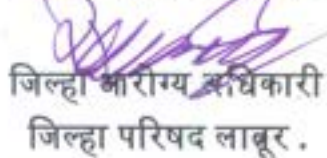 जिल्हा आरोग्य अधिकारी
जिल्हा परिषद लातूर .